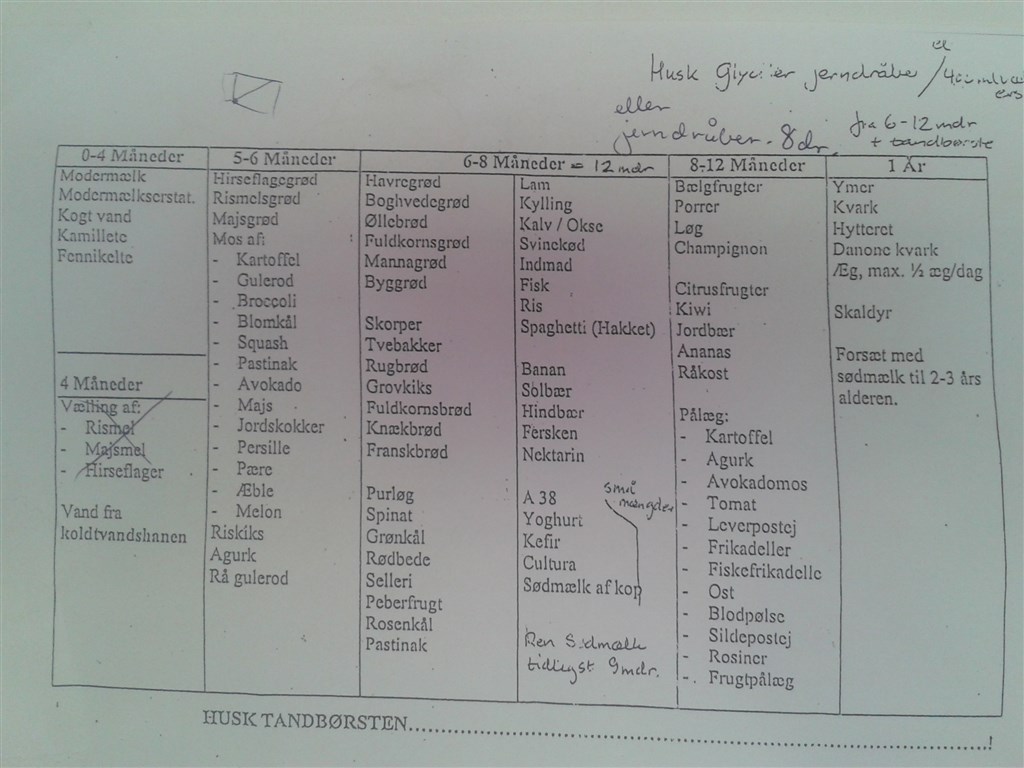 el
Husk jerndråbe / 400 ml
eller
jerndråber. 8 dr.
fra 6-12 mdr
+ tandbørste
0-4 Måneder
Modermælk
Modermælkserstat.
Kogt vand
Kamillete
Fennikelte
4 Måneder
Vælling af:
- Rismel
- Majsmel
- Hirseflager
Vand fra
koldtvandshanen
5-6 Måneder
Hirseflagegrød
Rismelsgrød
Majsgrød
Mos af:
- Kartoffel
- Gulerod
- Broccoli
- Blomkål
- Squash
- Pastinak
- Avokado
- Majs
- Jordskokker
- Persille
- Pære
- Æble
- Melon
Riskiks
Agurk
Rå gulerod
6-8 Måneder = 12 mdr
Havregrød
Boghvedegrød
Øllebrød
Fuldkornsgrød
Mannagrød
Byggrød
Skorper
Tvebakker
Rugbrød
Grovkiks
Fuldkornsbrød
Knækbrød
Franskbrød
Purløg
Spinat
Grønkål
Rødbede
Selleri
Peberfrugt
Rosenkål
Pastinak
Lam
Kylling
Kalv / Okse
Svinekød
Indmad
Fisk
Ris
Spaghetti (Hakket)
Banan
Solbær
Hindbær
Fersken
Nektarin
A 38
Yoghurt
Kefir
Cultura
Sødmælk af kop
små
mængder
Ren Sødmælk
tidligst 9 mdr.
8-12 Måneder
Bælgfrugter
Porrer
Løg
Champignon
Citrusfrugter
Kiwi
Jordbær
Ananas
Råkost
Pålæg:
- Kartoffel
- Agurk
- Avokadomos
- Tomat
- Leverpostej
- Frikadeller
- Fiskefrikadelle
- Ost
- Blodpølse
- Sildepostej
- Rosiner
- Frugtpålæg
1 År
Ymer
Kvark
Hytteost
Danone kvark
Æg, max. ½ æg/dag
Skaldyr
Forsæt med
sødmælk til 2-3 års
alderen.
HUSK TANDBØRSTEN..........................................................!